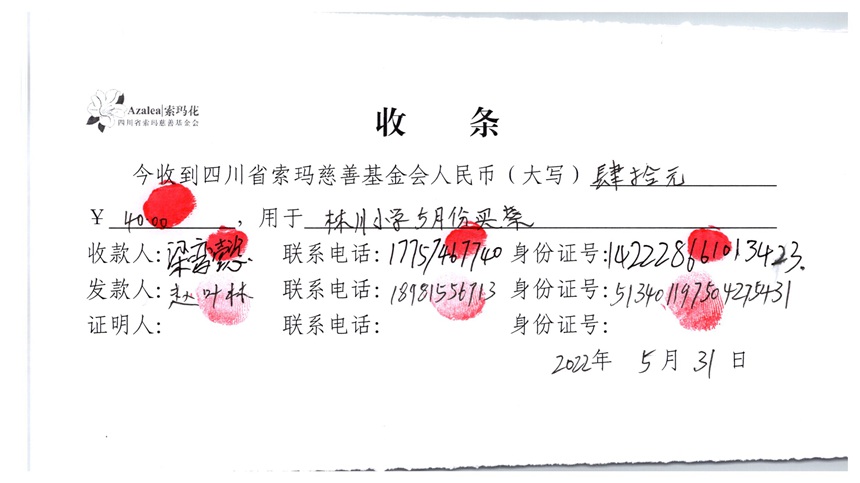 Azalea|索玛花
四川省索玛慈善基金会
收 条
今收到四川省索玛慈善基金会人民币（大写）肆拾元
￥ 40.00 ，用于 林川小学5月份买菜
收款人: 梁 联系电话: 17757467740 身份证号:
发款人: 赵叶林 联系电话: 18981556713 身份证号: 513401197504275431
证明人: 联系电话: 身份证号:
2022年 5月 31日